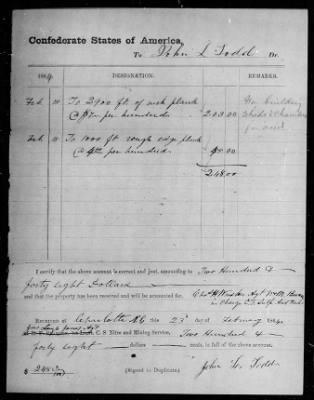 Confederate States of America,
To John L Todd Dr.
1864. DESIGNATION. REMARKS.
Feb 10 To 2900 ft of inch plank For building
@ $7 per hundred 203.00 Sheds & Chambers
for use
Feb 10 To 1000 ft rough edge plank
@ 4 50/100 per hundred 45.00
248.00
I certify that the above account is correct and just, amounting to Two Hundred &
forty eight Dollars
and that the property has been received and will be accounted for. Agt
in Charge
RECEIVED at Charlotte NC this 23 day of February 1864
C. S. Nitre and Mining Service, Two Hundred &
forty eight dollars cents, in full of the above account.
$ 248 00/100 (Signed in Duplicate.) John L. Todd